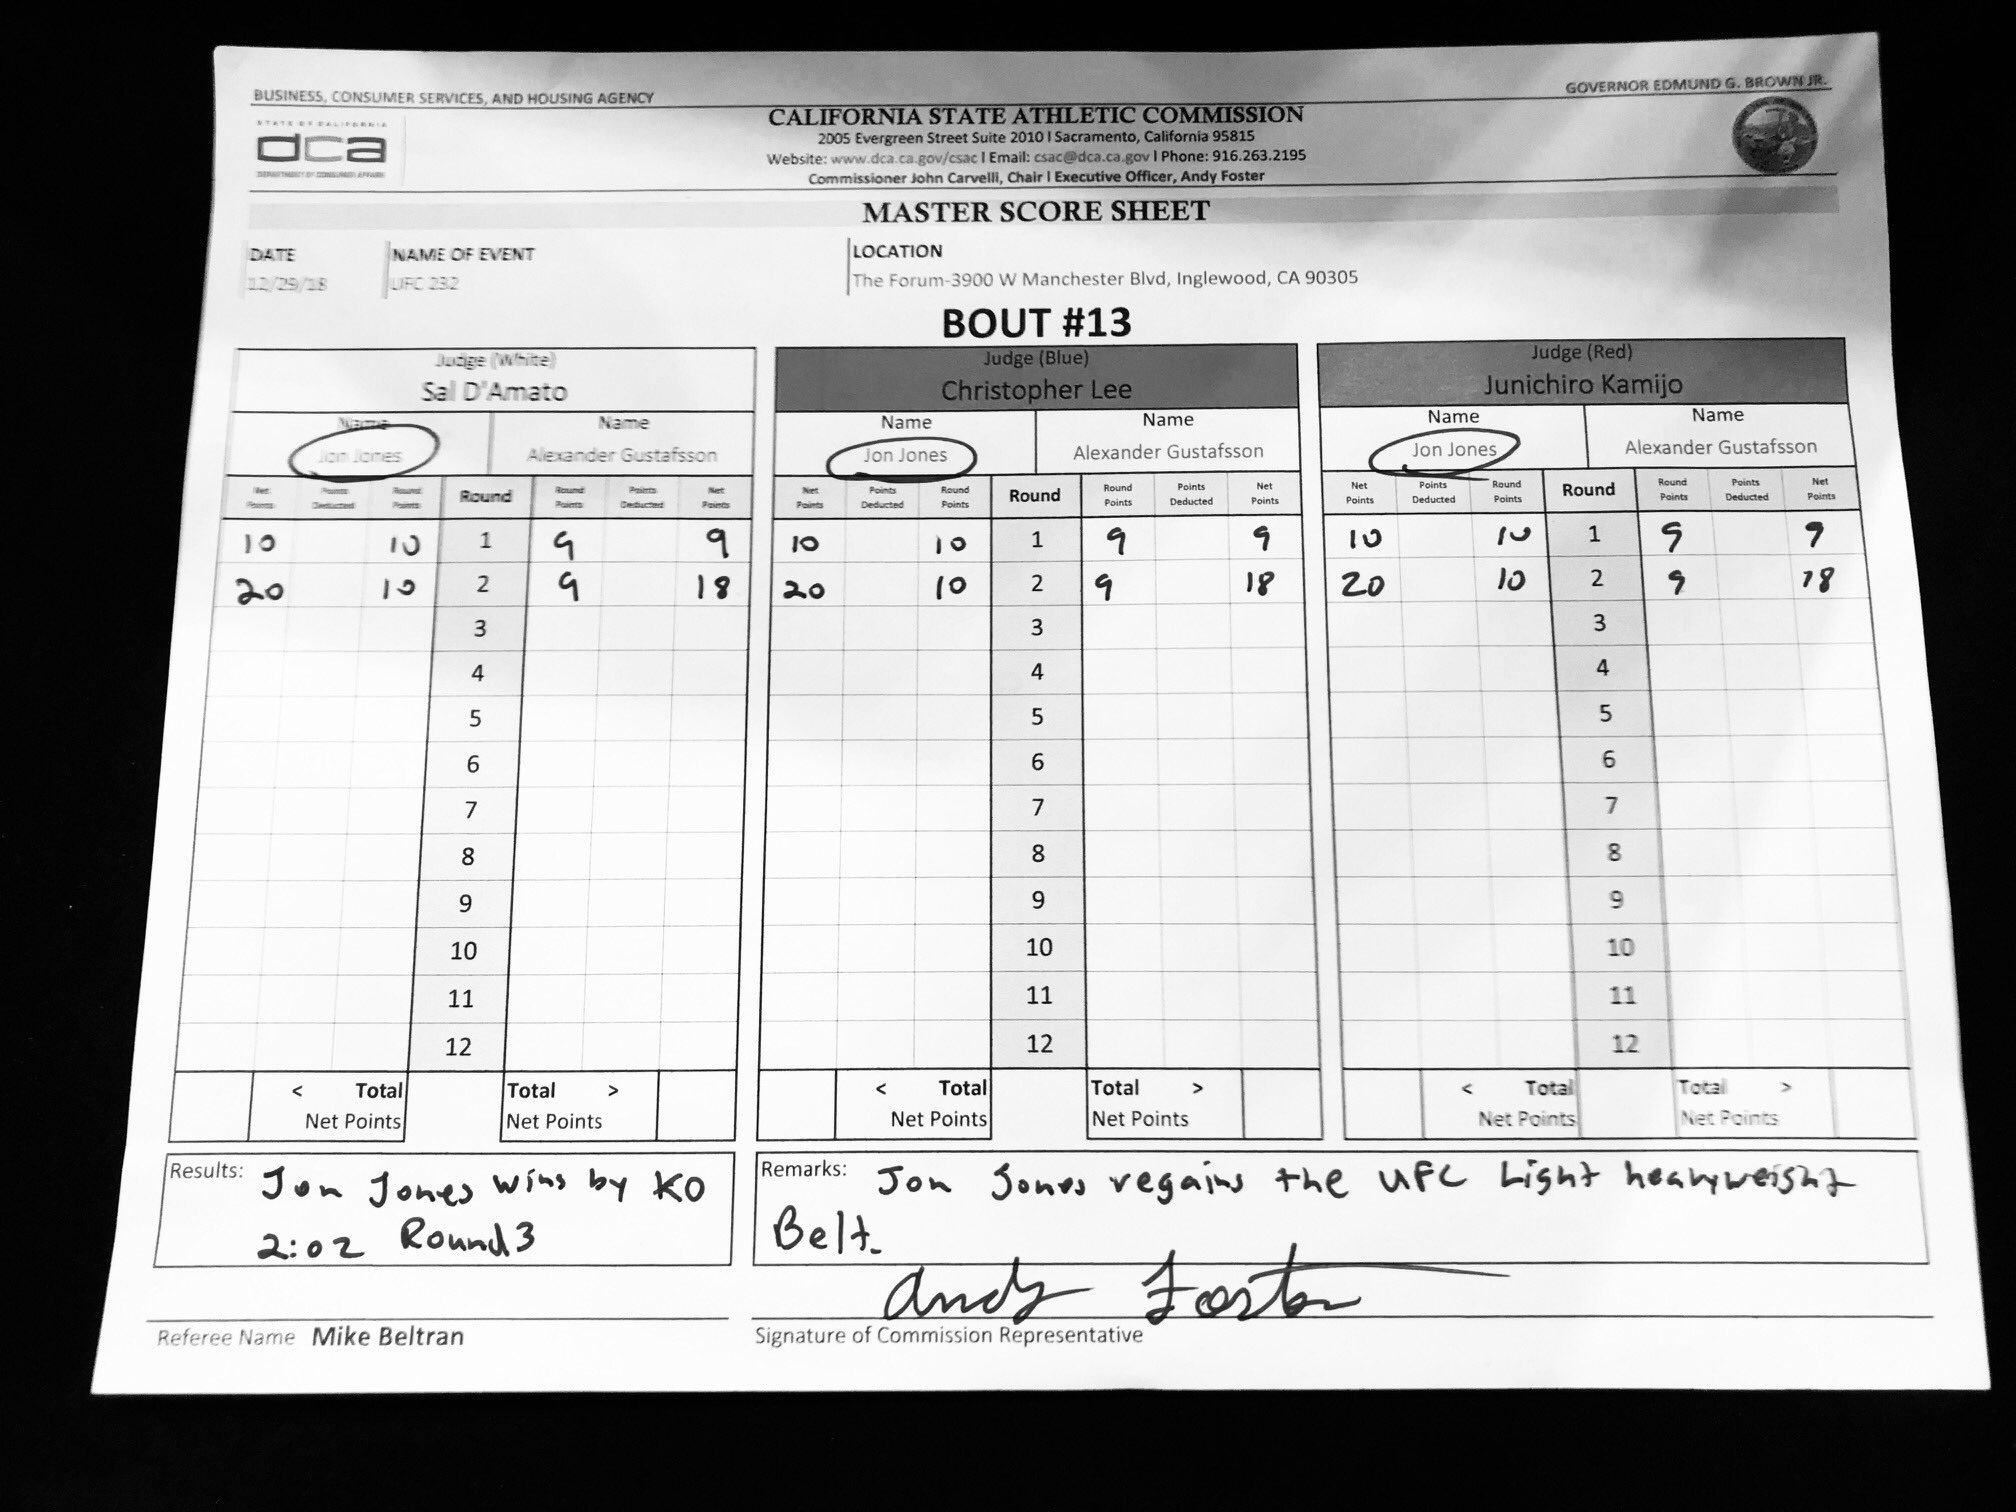 BUSINESS, CONSUMER SERVICES, AND HOUSING AGENCY
GOVERNOR EDMUND G. BROWN JR.
STATE OF CALIFORNIA
dca
DEPARTMENT OF CONSUMER AFFAIRS
CALIFORNIA STATE ATHLETIC COMMISSION
2005 Evergreen Street Suite 2010 I Sacramento, California 95815
Website: www.dca.ca.gov/csac I Email: csac@dca.ca.gov I Phone: 916.263.2195
Commissioner John Carvelli, Chair I Executive Officer, Andy Foster
MASTER SCORE SHEET
DATE NAME OF EVENT LOCATION
12/29/18 UFC 232 The Forum-3900 W Manchester Blvd, Inglewood, CA 90305
BOUT #13
Judge (White) Judge (Blue) Judge (Red)
Sal D'Amato Christopher Lee Junichiro Kamijo
Name Name Name Name Name Name
Jon Jones Alexander Gustafsson Jon Jones Alexander Gustafsson Jon Jones Alexander Gustafsson
Net Points Round Round Points Net Net Points Round Round Points Net Net Points Round Round Points Net
Points Deducted Points Round Points Deducted Points Points Deducted Points Round Points Deducted Points Points Deducted Points Round Points Deducted Points
10 10 1 9 9 10 10 1 9 9 10 10 1 9 9
20 10 2 9 18 20 10 2 9 18 20 10 2 9 18
3 3 3
4 4 4
5 5 5
6 6 6
7 7 7
8 8 8
9 9 9
10 10 10
11 11 11
12 12 12
< Total Total > < Total Total > < Total Total >
Net Points Net Points Net Points Net Points Net Points Net Points
Results: Jon Jones wins by KO
2:02 Round 3
Remarks: Jon Jones regains the UFC Light heavyweight
Belt.
Andy Foster
Referee Name Mike Beltran
Signature of Commission Representative